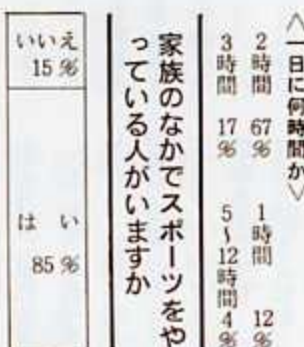 ＜一日に何時間か＞
2時間 67％ 1時間 12％
3時間 17％ 5〜12時間 4％
家族のなかでスポーツをや
っている人がいますか
いいえ 15％
はい 85％